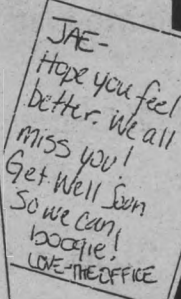 JAE-
Hope you feel
better. We all
miss you!
Get Well Soon
So we can
boogie!
LOVE-THE OFFICE